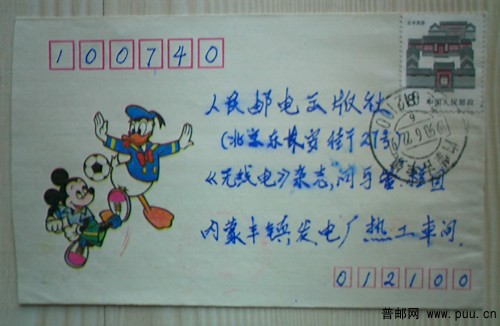 100740
北京民居
中国人民邮政
人民邮电出版社
(北京东长安街27号)
《无线电》杂志,问与答栏目
内蒙丰镇发电厂热工车间
012100
普邮网 www.puu.cn